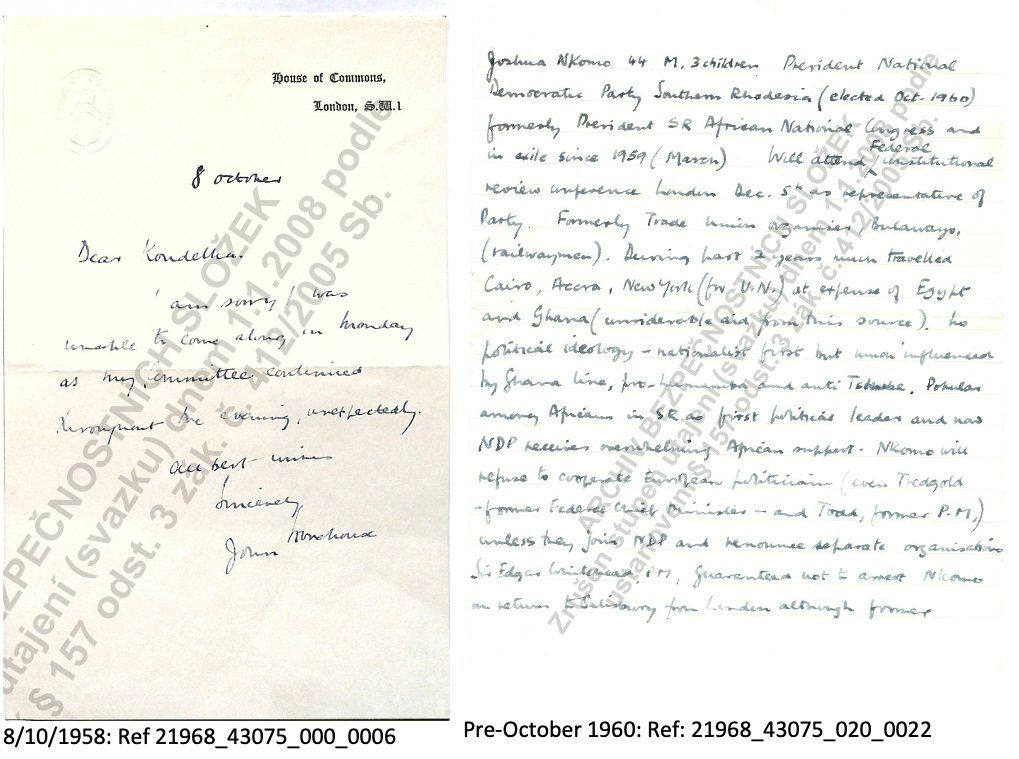 House of Commons,
London, S.W.1
8 October
Dear Koudelka.
I am sorry I was
unable to come along on Monday
as my Committee continued
throughout the evening, unexpectedly.
All best wishes
Sincerely
John
8/10/1958: Ref 21968_43075_000_0006
Joshua Nkomo 44 M. 3 children President National
Democratic Party Southern Rhodesia (elected Oct. 1960)
formerly President SR African National Congress and
in exile since 1959 (March) Will attend Federal constitutional
review conference London Dec. 5th as representative of
Party. Formerly Trade union organiser, Bulawayo,
(railwaymen). During past 2 years much travelled
Cairo, Accra, New York (for U.N.) at expense of Egypt
and Ghana (considerable aid from this source). No
political ideology – nationalist first but much influenced
by Ghana line, pro-Lumumba and anti Tshombe. Popular
among Africans in SR as first political leader and now
NDP receives overwhelming African support. Nkomo will
refuse to cooperate European politicians (even Tredgold
– former Federal Chief – and Todd, former P.M.)
unless they join NDP and renounce separate organisations
Sir Edgar Whitehead, PM, guaranteed not to arrest Nkomo
on return to Salisbury from London although former
ARCHIV BEZPEČNOSTNÍCH SLOŽEK
Zrušen stupeň utajení (svazku) dnem 1.1.2008 podle
ustanovení § 157 odst. 3 zák. č. 412/2005 Sb.
PEČNOSTNÍCH SLOŽEK
utajení (svazku) dnem 1.1.2008 podle
§ 157 odst. 3 zák. č. 412/2005 Sb.
Pre-October 1960: Ref: 21968_43075_020_0022